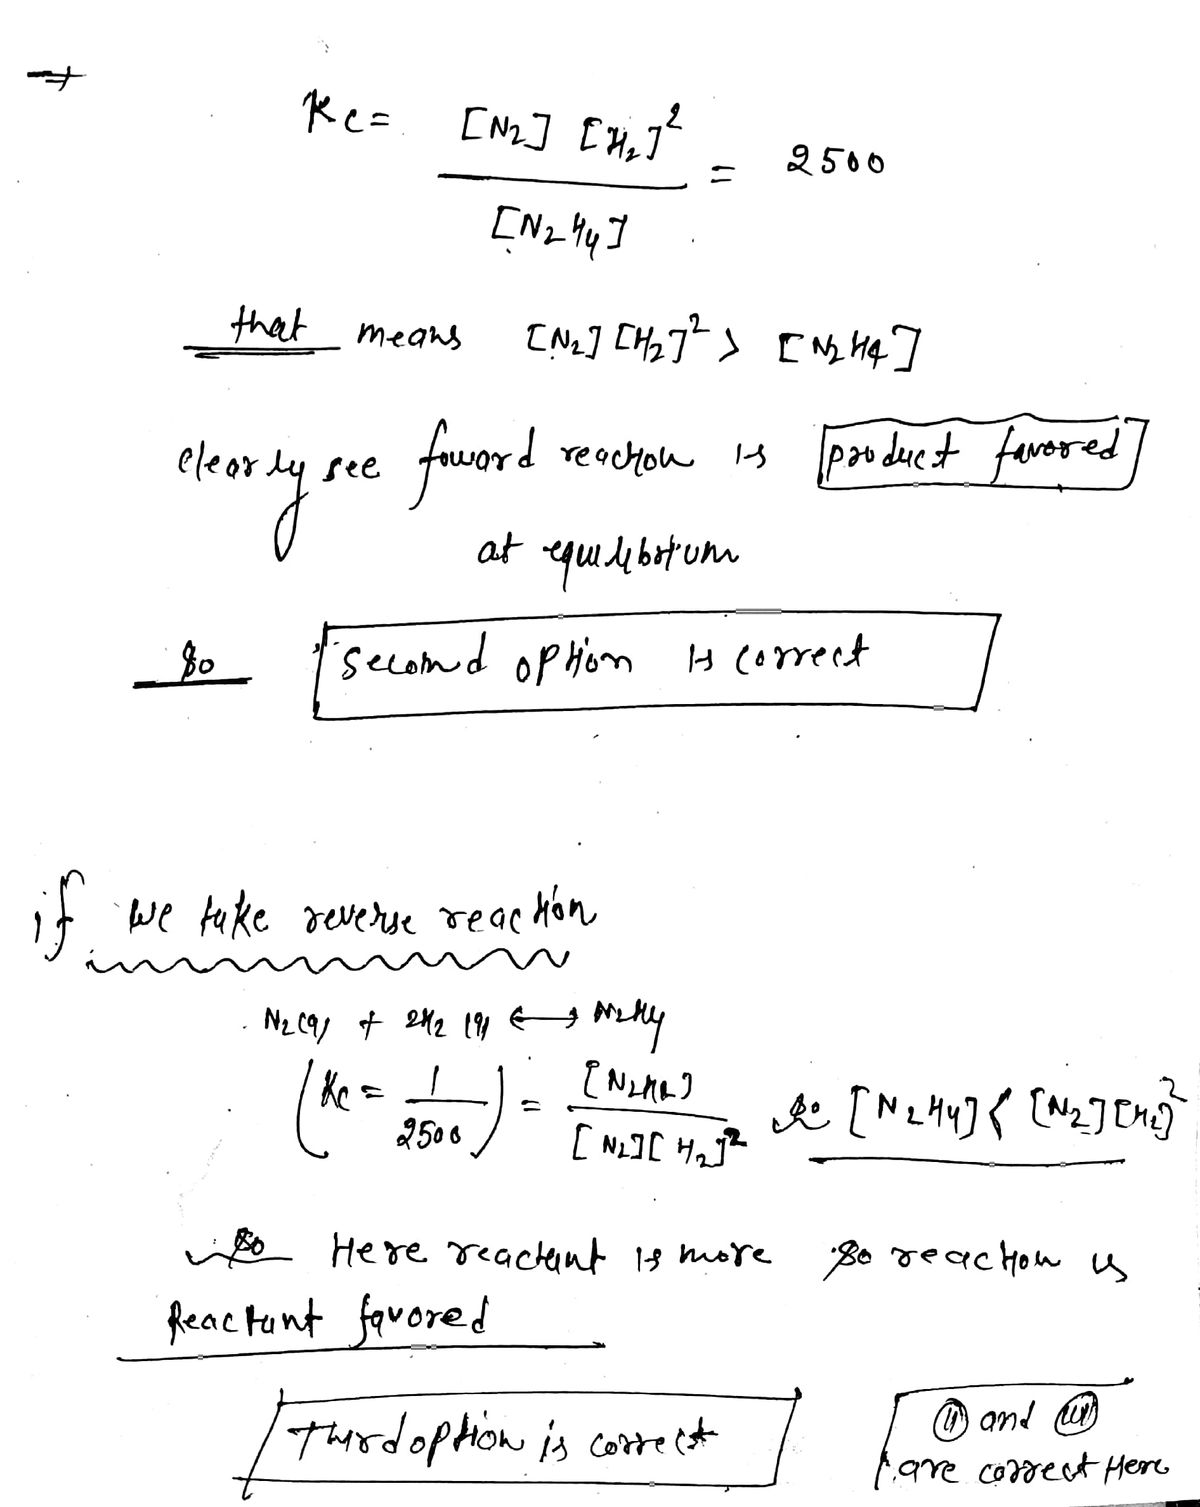 ⇒
Kc = [N2] [H2]^2 / [N2H4] = 2500
that means [N2] [H2]^2 > [N2H4]
clearly see foward reaction is product favored
at equilibrium
So Second option is correct
if we take reverse reaction
N2(g) + 2H2(g) ⟷ N2H4
(Kc = 1/2500) = [N2H4] / [N2][H2]^2 So [N2H4] < [N2][H2]^2
So Here reactant is more So reaction is
Reactant favored
Third option is correct
(ii) and (iii)
are correct Here